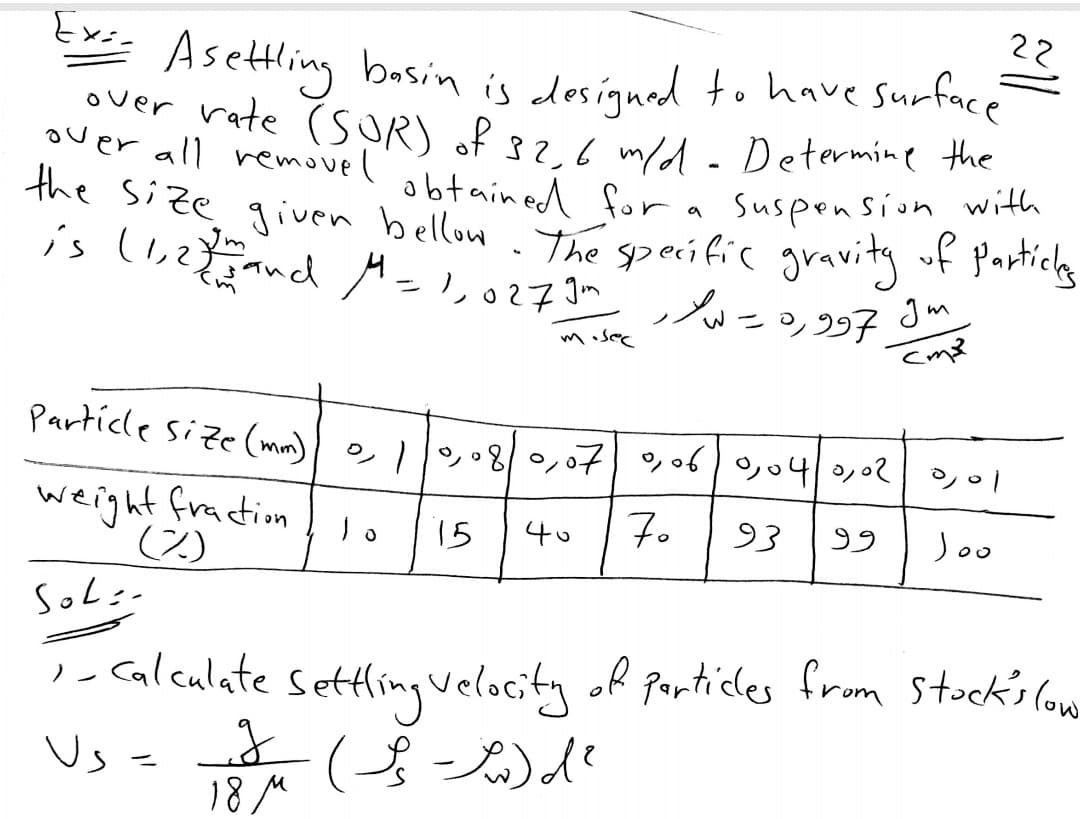 Ex:-
22
A settling basin is designed to have surface
over rate (SOR) of 32,6 m/d. Determine the
over all removel obtained for a suspension with
the size given bellow. The specific gravity of particles
is (1,2) gm/cm³ and μ = 1,027 gm/m.sec , ρw = 0,997 gm/cm³
Particle size (mm) 0,1 0,08 0,07 0,06 0,04 0,02 0,01
weight fraction (%) 10 15 40 70 93 99 100
Sol:-
1- Calculate settling velocity of particles from stock's low
Vs = g/18μ (ρs - ρw) d²